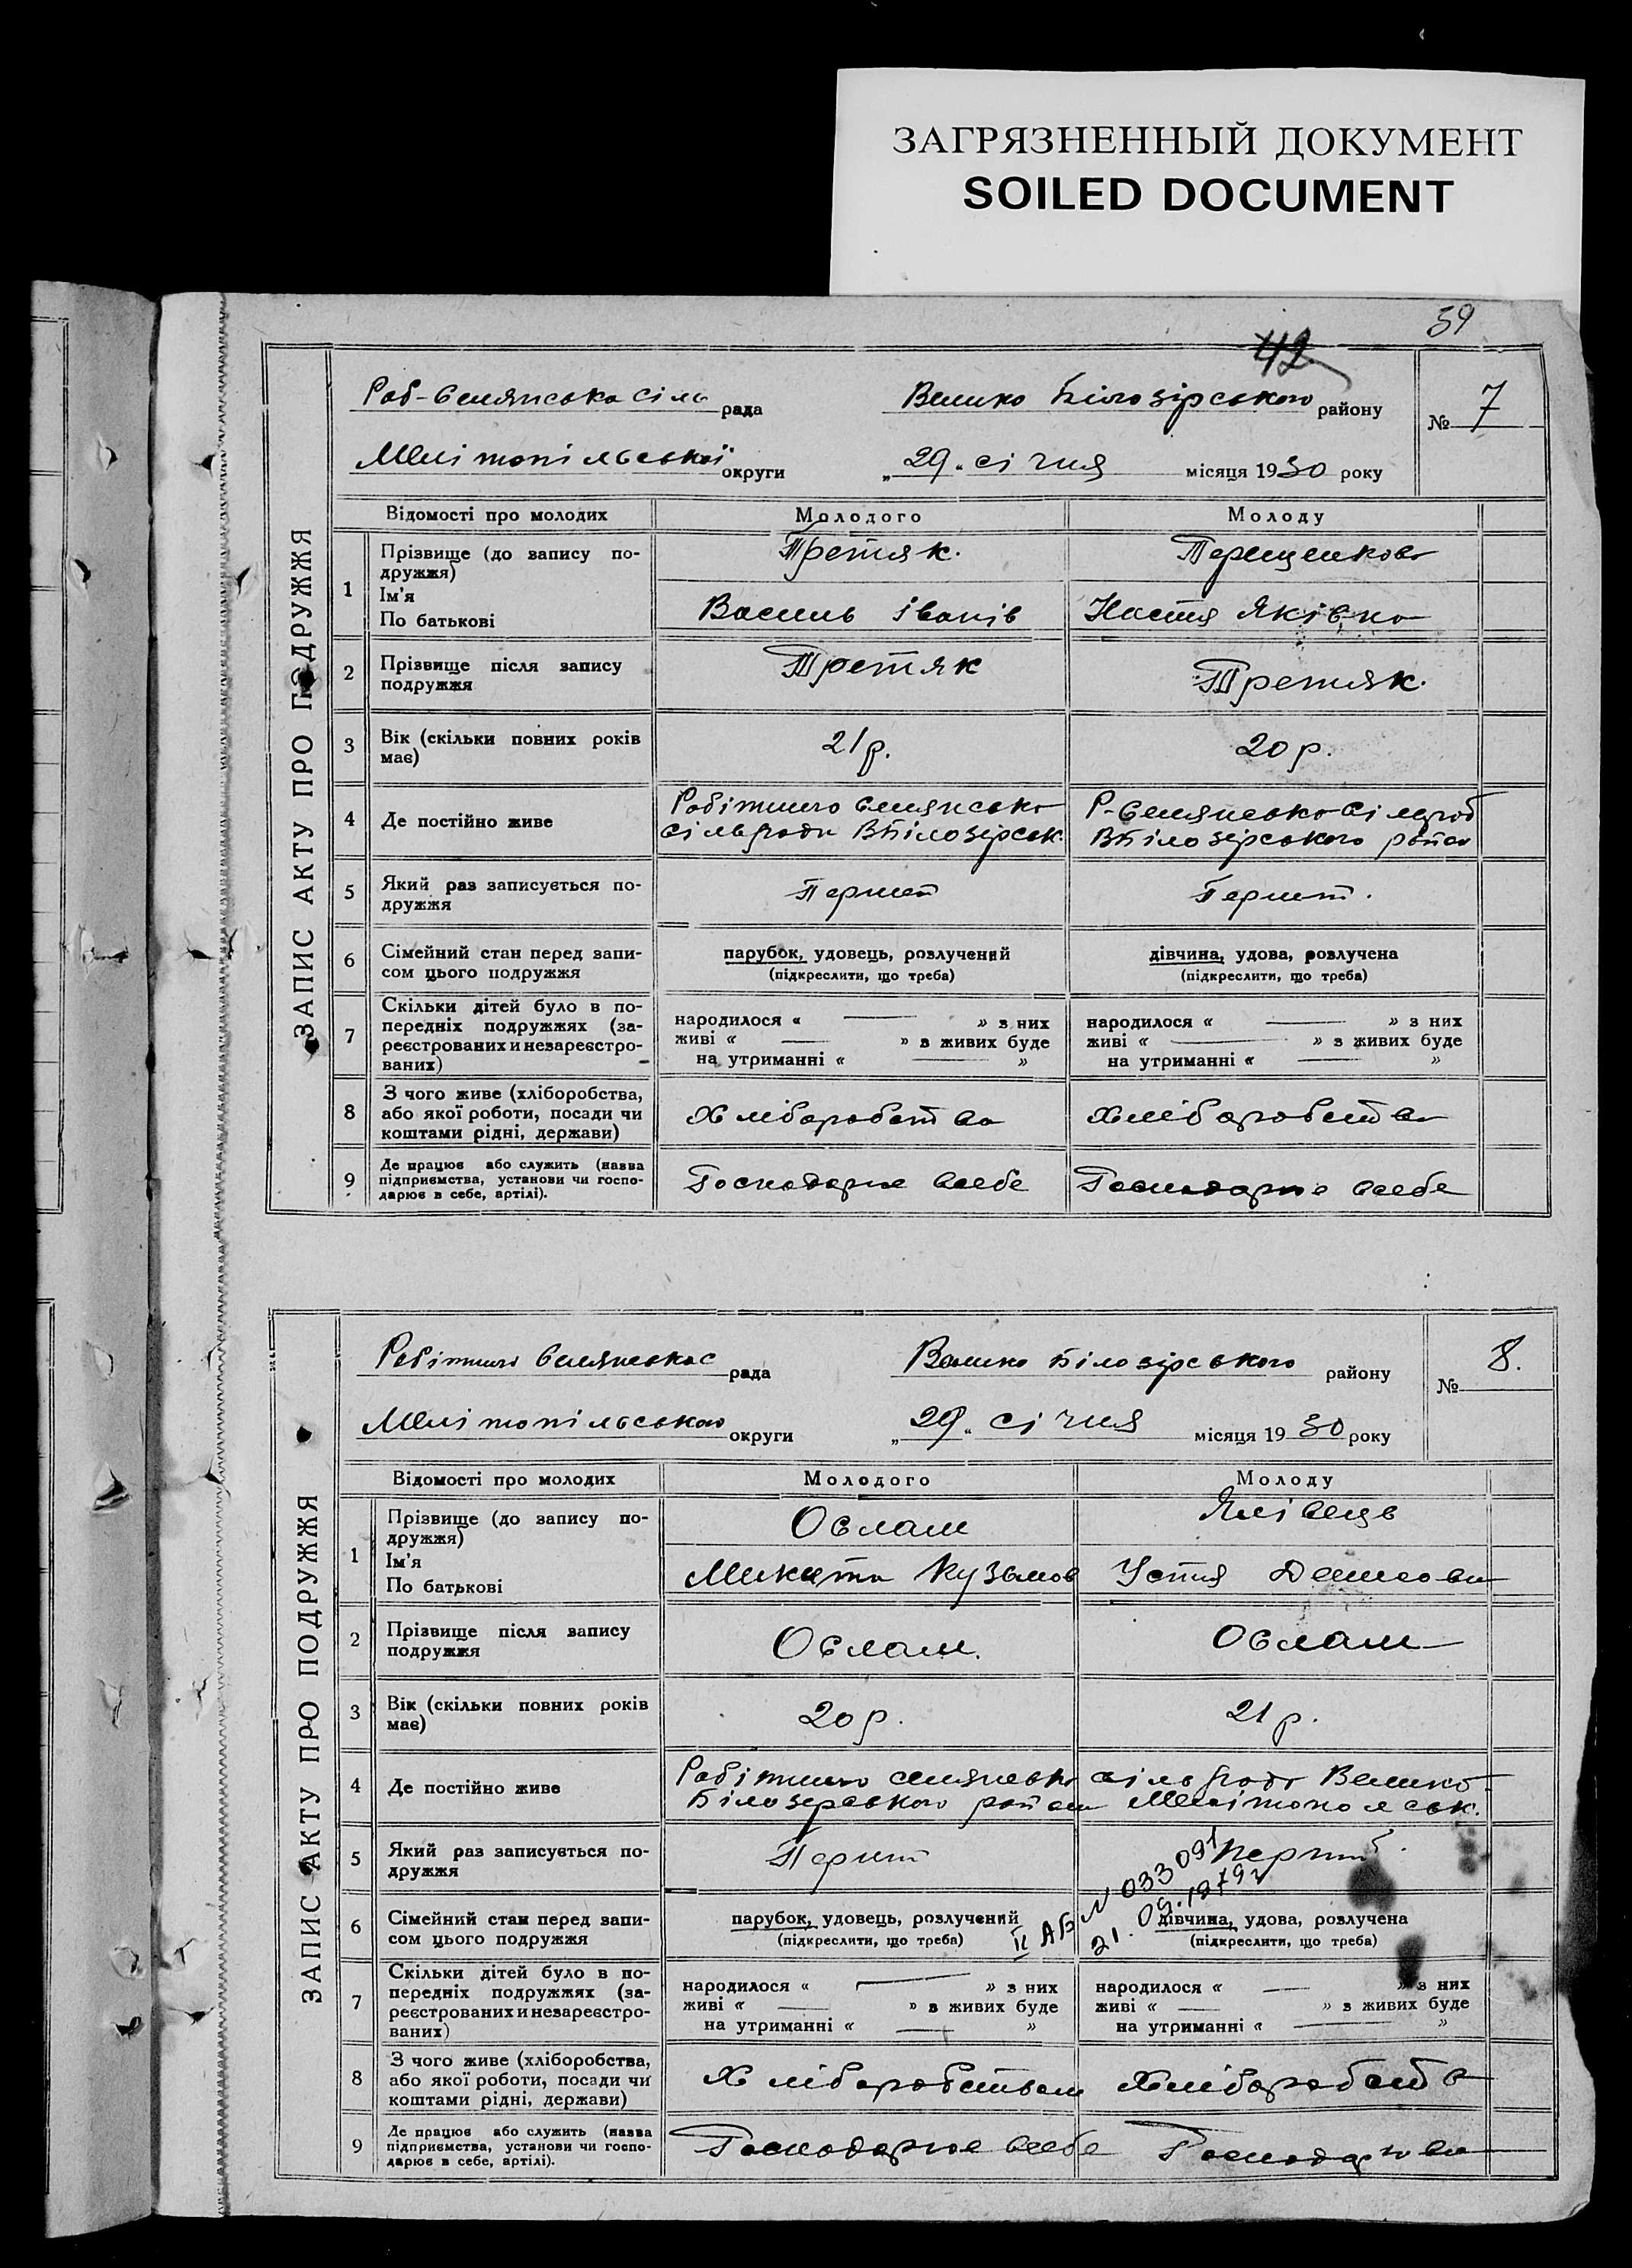 ЗАГРЯЗНЕННЫЙ ДОКУМЕНТ
SOILED DOCUMENT
59
42
ЗАПИС АКТУ ПРО ПОДРУЖЖЯ
Роб-Селянська сіль рада Велико Білозірського району № 7
Мелітопільської округи „29„ січня місяця 1930 року
Відомості про молодих Молодого Молоду
1 Прізвище (до запису по-
дружжя) Третяк. Терещенкова
Ім'я
По батькові Василь Іванів Настя Яківна
2 Прізвище після запису
подружжя Третяк Третяк.
3 Вік (скільки повних років
має) 21 р. 20 р.
4 Де постійно живе Робітничо Селянсько Р-Селянсько
сільради ВБілозірськ. ВБілозірського району
5 Який раз записується по-
дружжя Перший Перший.
6 Сімейний стан перед запи-
сом цього подружжя
парубок, удовець, розлучений
(підкреслити, що треба)
дівчина, удова, розлучена
(підкреслити, що треба)
7 Скільки дітей було в по-
передніх подружжях (за-
реєстрованих и незареєстро-
ваних)
народилося « — » з них
живі « — » з живих буде
на утриманні « — »
народилося « — » з них
живі « — » з живих буде
на утриманні « — »
8 З чого живе (хліборобства,
або якої роботи, посади чи
коштами рідні, держави)
Хліборобства Хліборобства
9 Де працює або служить (назва
підприємства, установи чи госпо-
дарює в себе, артілі).
Господарює всебе Господарює всебе
ЗАПИС АКТУ ПРО ПОДРУЖЖЯ
Робітничо Селянськас рада Велико Білозірського району № 8.
Мелітопільського округи „29„ січня місяця 1930 року
Відомості про молодих Молодого Молоду
1 Прізвище (до запису по-
дружжя)
Ім'я
По батькові Микита Кузьмов Устя
2 Прізвище після запису
подружжя
3 Вік (скільки повних років
має) 20 р. 21 р.
4 Де постійно живе Робітничо селянсько сільради Велико-
Білозерського району
5 Який раз записується по-
дружжя Перший перший.
II АБ N 033091
21.09.1979г
6 Сімейний стан перед запи-
сом цього подружжя
парубок, удовець, розлучений
(підкреслити, що треба)
дівчина, удова, розлучена
(підкреслити, що треба)
7 Скільки дітей було в по-
передніх подружжях (за-
реєстрованих и незареєстро-
ваних)
народилося « — » з них
живі « — » з живих буде
на утриманні « — »
народилося « — » з них
живі « — » з живих буде
на утриманні « — »
8 З чого живе (хліборобства,
або якої роботи, посади чи
коштами рідні, держави)
Хліборобством Хліборобств
9 Де працює або служить (назва
підприємства, установи чи госпо-
дарює в себе, артілі).
Господарює всебе